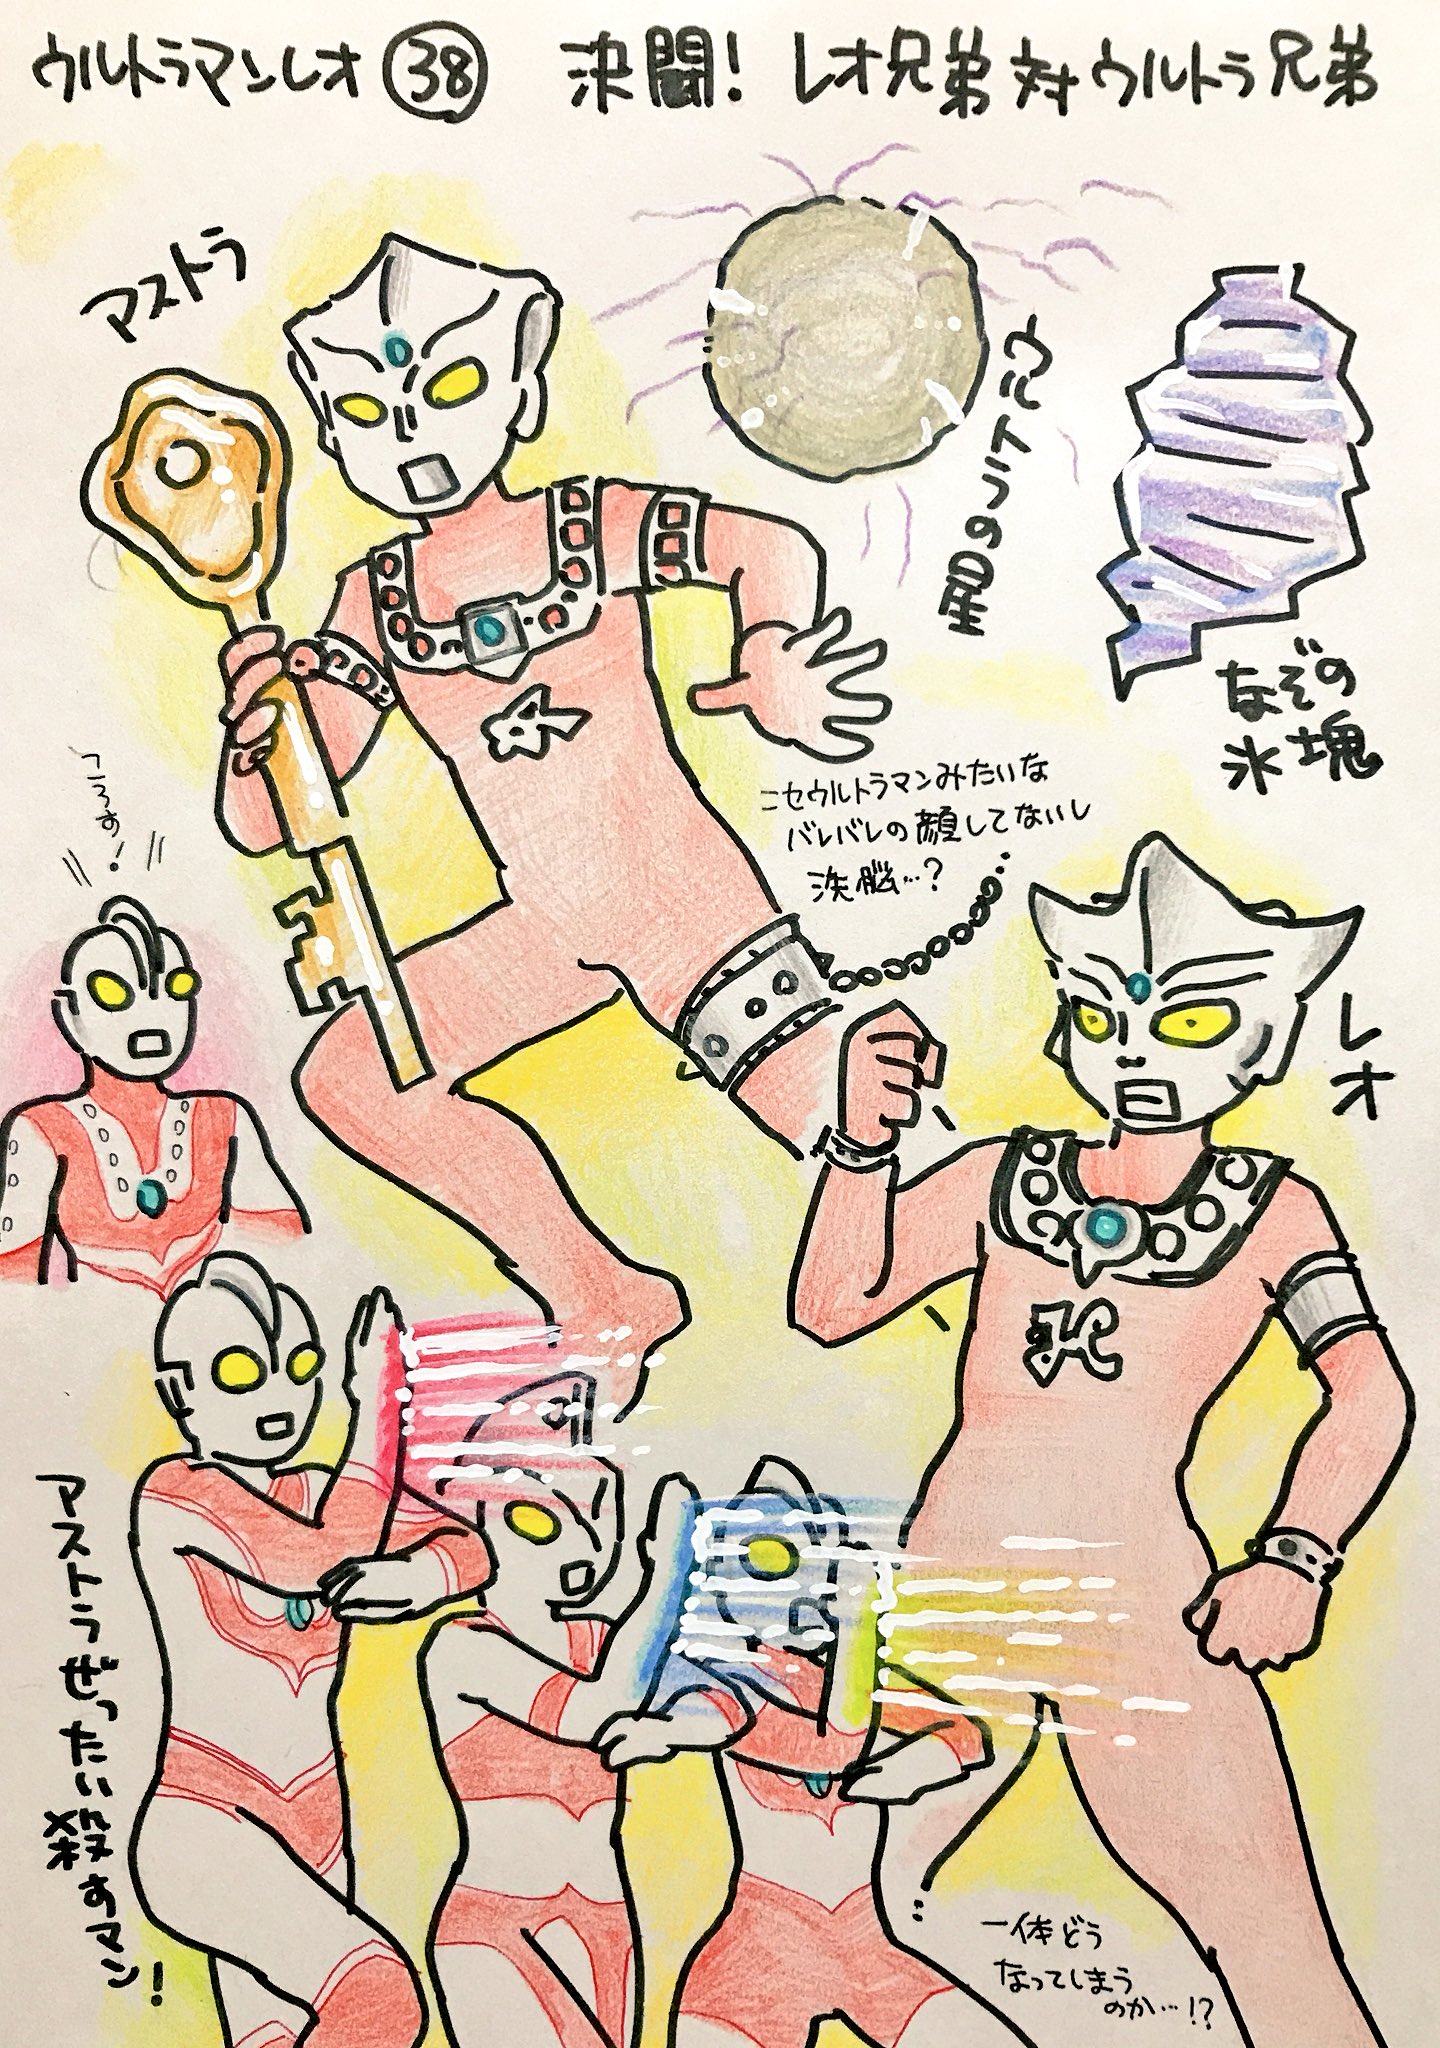 ウルトラマンレオ 38 決闘! レオ兄弟対ウルトラ兄弟
アストラ
ウルトラの星
なぞの
氷塊
ころす!
ニセウルトラマンみたいな
バレバレの顔してないし
洗脳…?
レオ
アストラぜったい殺すマン!
一体どう
なってしまう
のか…!?